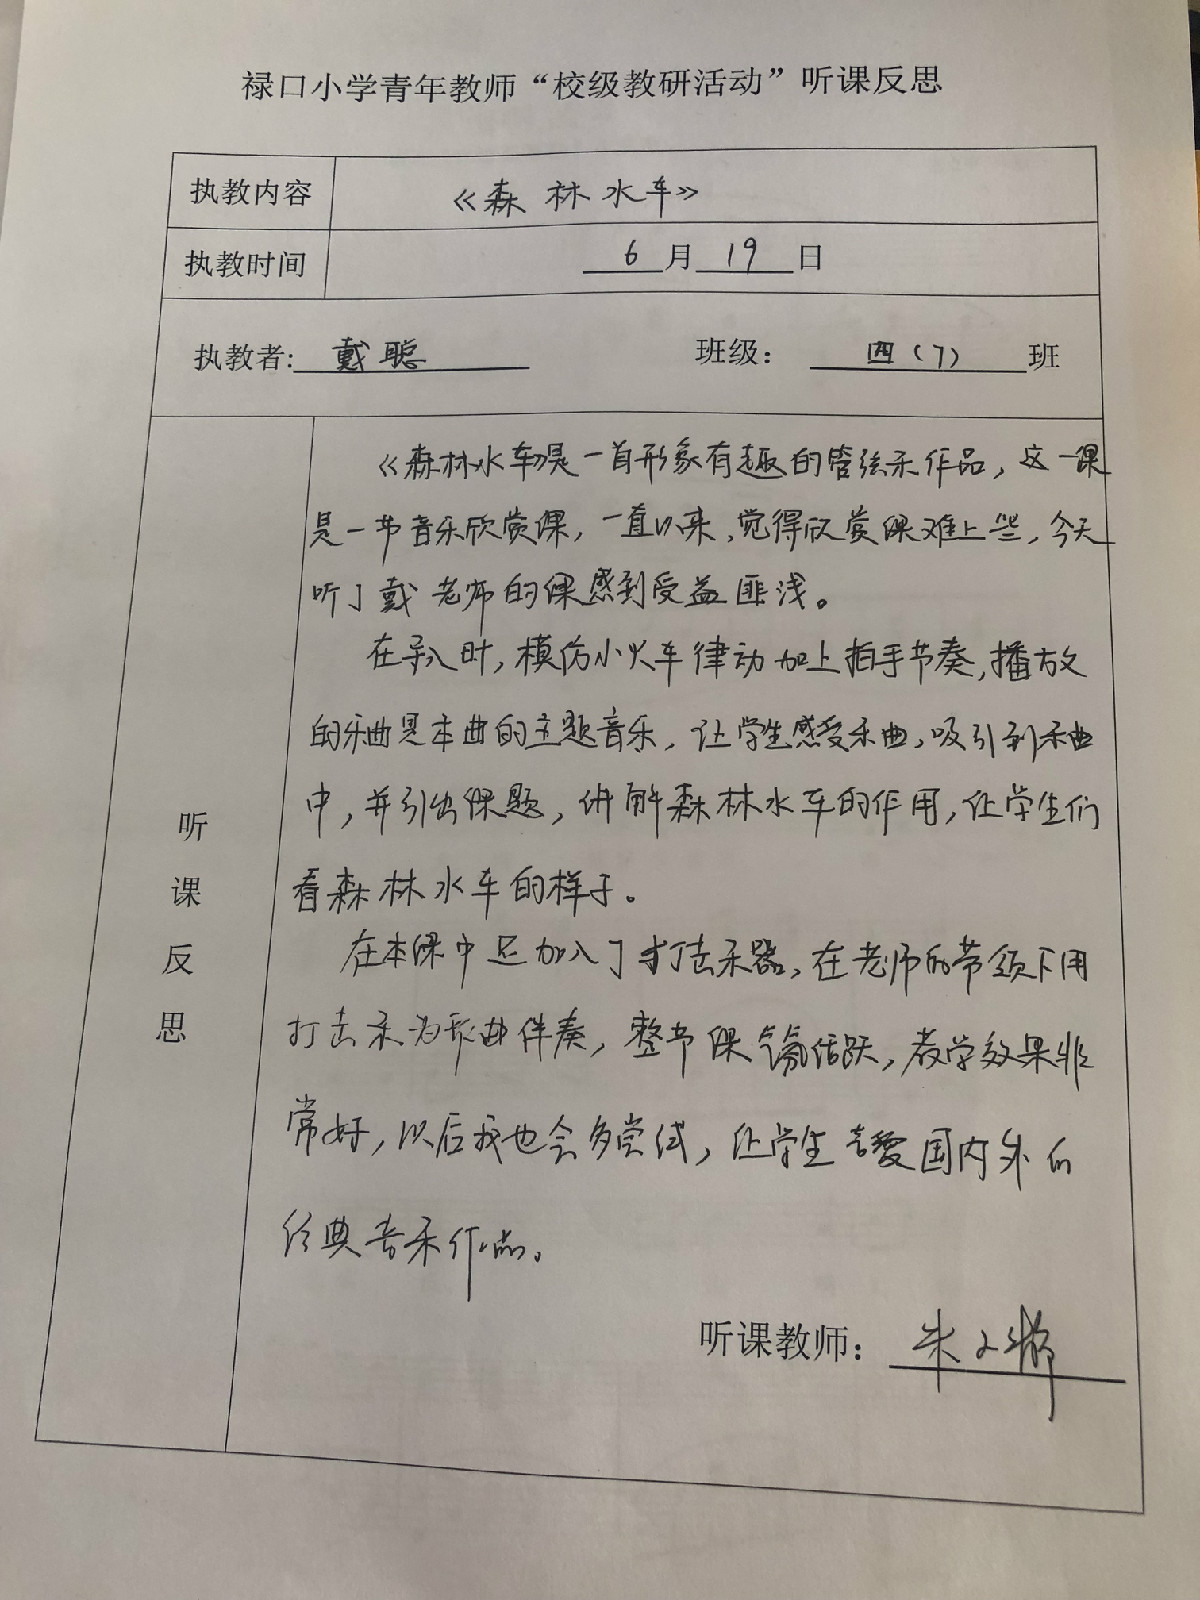 禄口小学青年教师“校级教研活动”听课反思
执教内容 《森林水车》
执教时间 6月19日
执教者: 戴聪 班级: 四(7) 班
《森林水车》是一首形象有趣的管弦乐作品，这一课
是一节音乐欣赏课，一直以来，觉得欣赏课难上些，今天
听了戴老师的课感到受益匪浅。
在导入时，模仿小火车律动加上拍手节奏，播放
的乐曲是本曲的主题音乐，让学生感受乐曲，吸引到乐曲
中，并引出课题，讲解森林水车的作用，让学生们
看森林水车的样子。
在本课中还加入了打击乐器，在老师的带领下用
打击乐为乐曲伴奏，整节课气氛活跃，教学效果非
常好，以后我也会多尝试，让学生喜爱国内外的
经典音乐作品。
听课反思
听课教师: 朱文